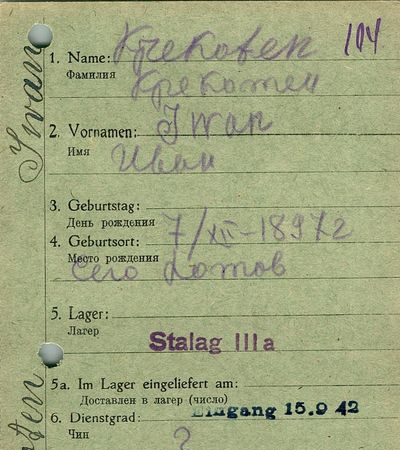 104
1. Name:
Фамилия
2. Vornamen: Iwan
Имя Иван
3. Geburtstag:
День рождения 7/XII-1897 г
4. Geburtsort:
Место рождения
Село
5. Lager:
Лагер
Stalag IIIa
5a. Im Lager eingeliefert am:
Доставлен в лагер (число)
Eingang 15.9 42
6. Dienstgrad:
Чин ?
Iwan